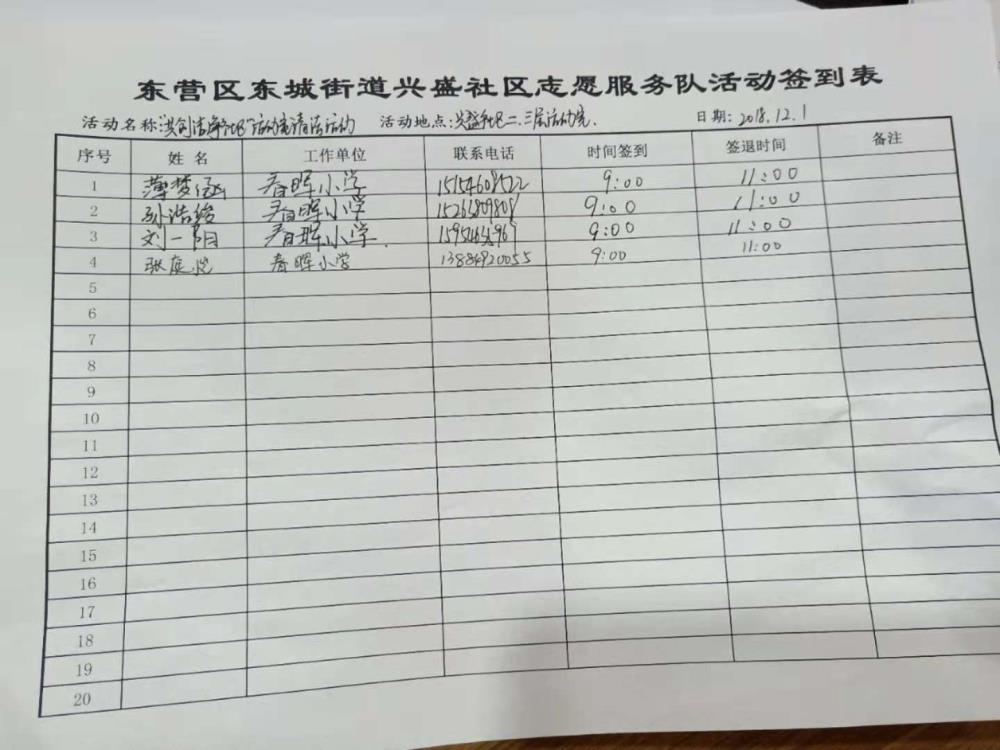 东营区东城街道兴盛社区志愿服务队活动签到表
活动名称:"共创洁净社区"活动室清洁活动 活动地点:兴盛社区二、三层活动室. 日期:2018.12.1
序号 姓名 工作单位 联系电话 时间签到 签退时间 备注
1 薄梦涵 春晖小学 15154608522 9:00 11:00
2 孙浩绮 春晖小学 9:00 11:00
3 刘一阳 春晖小学. 9:00 11:00
4 张庭悦 春晖小学 13884920055 9:00 11:00
5
6
7
8
9
10
11
12
13
14
15
16
17
18
19
20